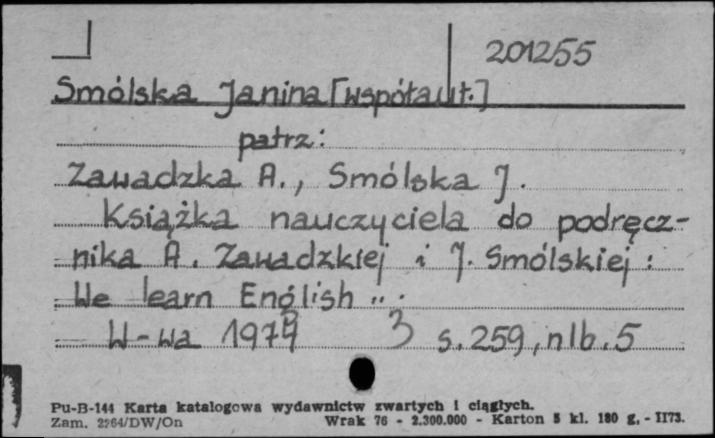 201255
Smólska Janina [współaut.]
patrz:
Zawadzka A., Smólska J.
Książka nauczyciela do podręcz-
nika A. Zawadzkiej i J. Smólskiej:
We learn English".
W-wa 1979 3 s. 259, nlb. 5
Pu-B-144 Karta katalogowa wydawnictw zwartych i ciągłych.
Zam. 2264/DW/On Wrak 76 - 2.300.000 - Karton 5 kl. 180 g. - II73.